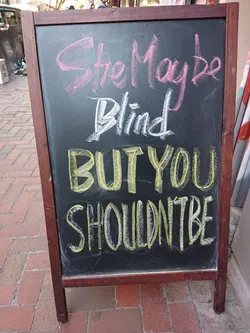 She Maybe
Blind
BUT YOU
SHOULDNT BE